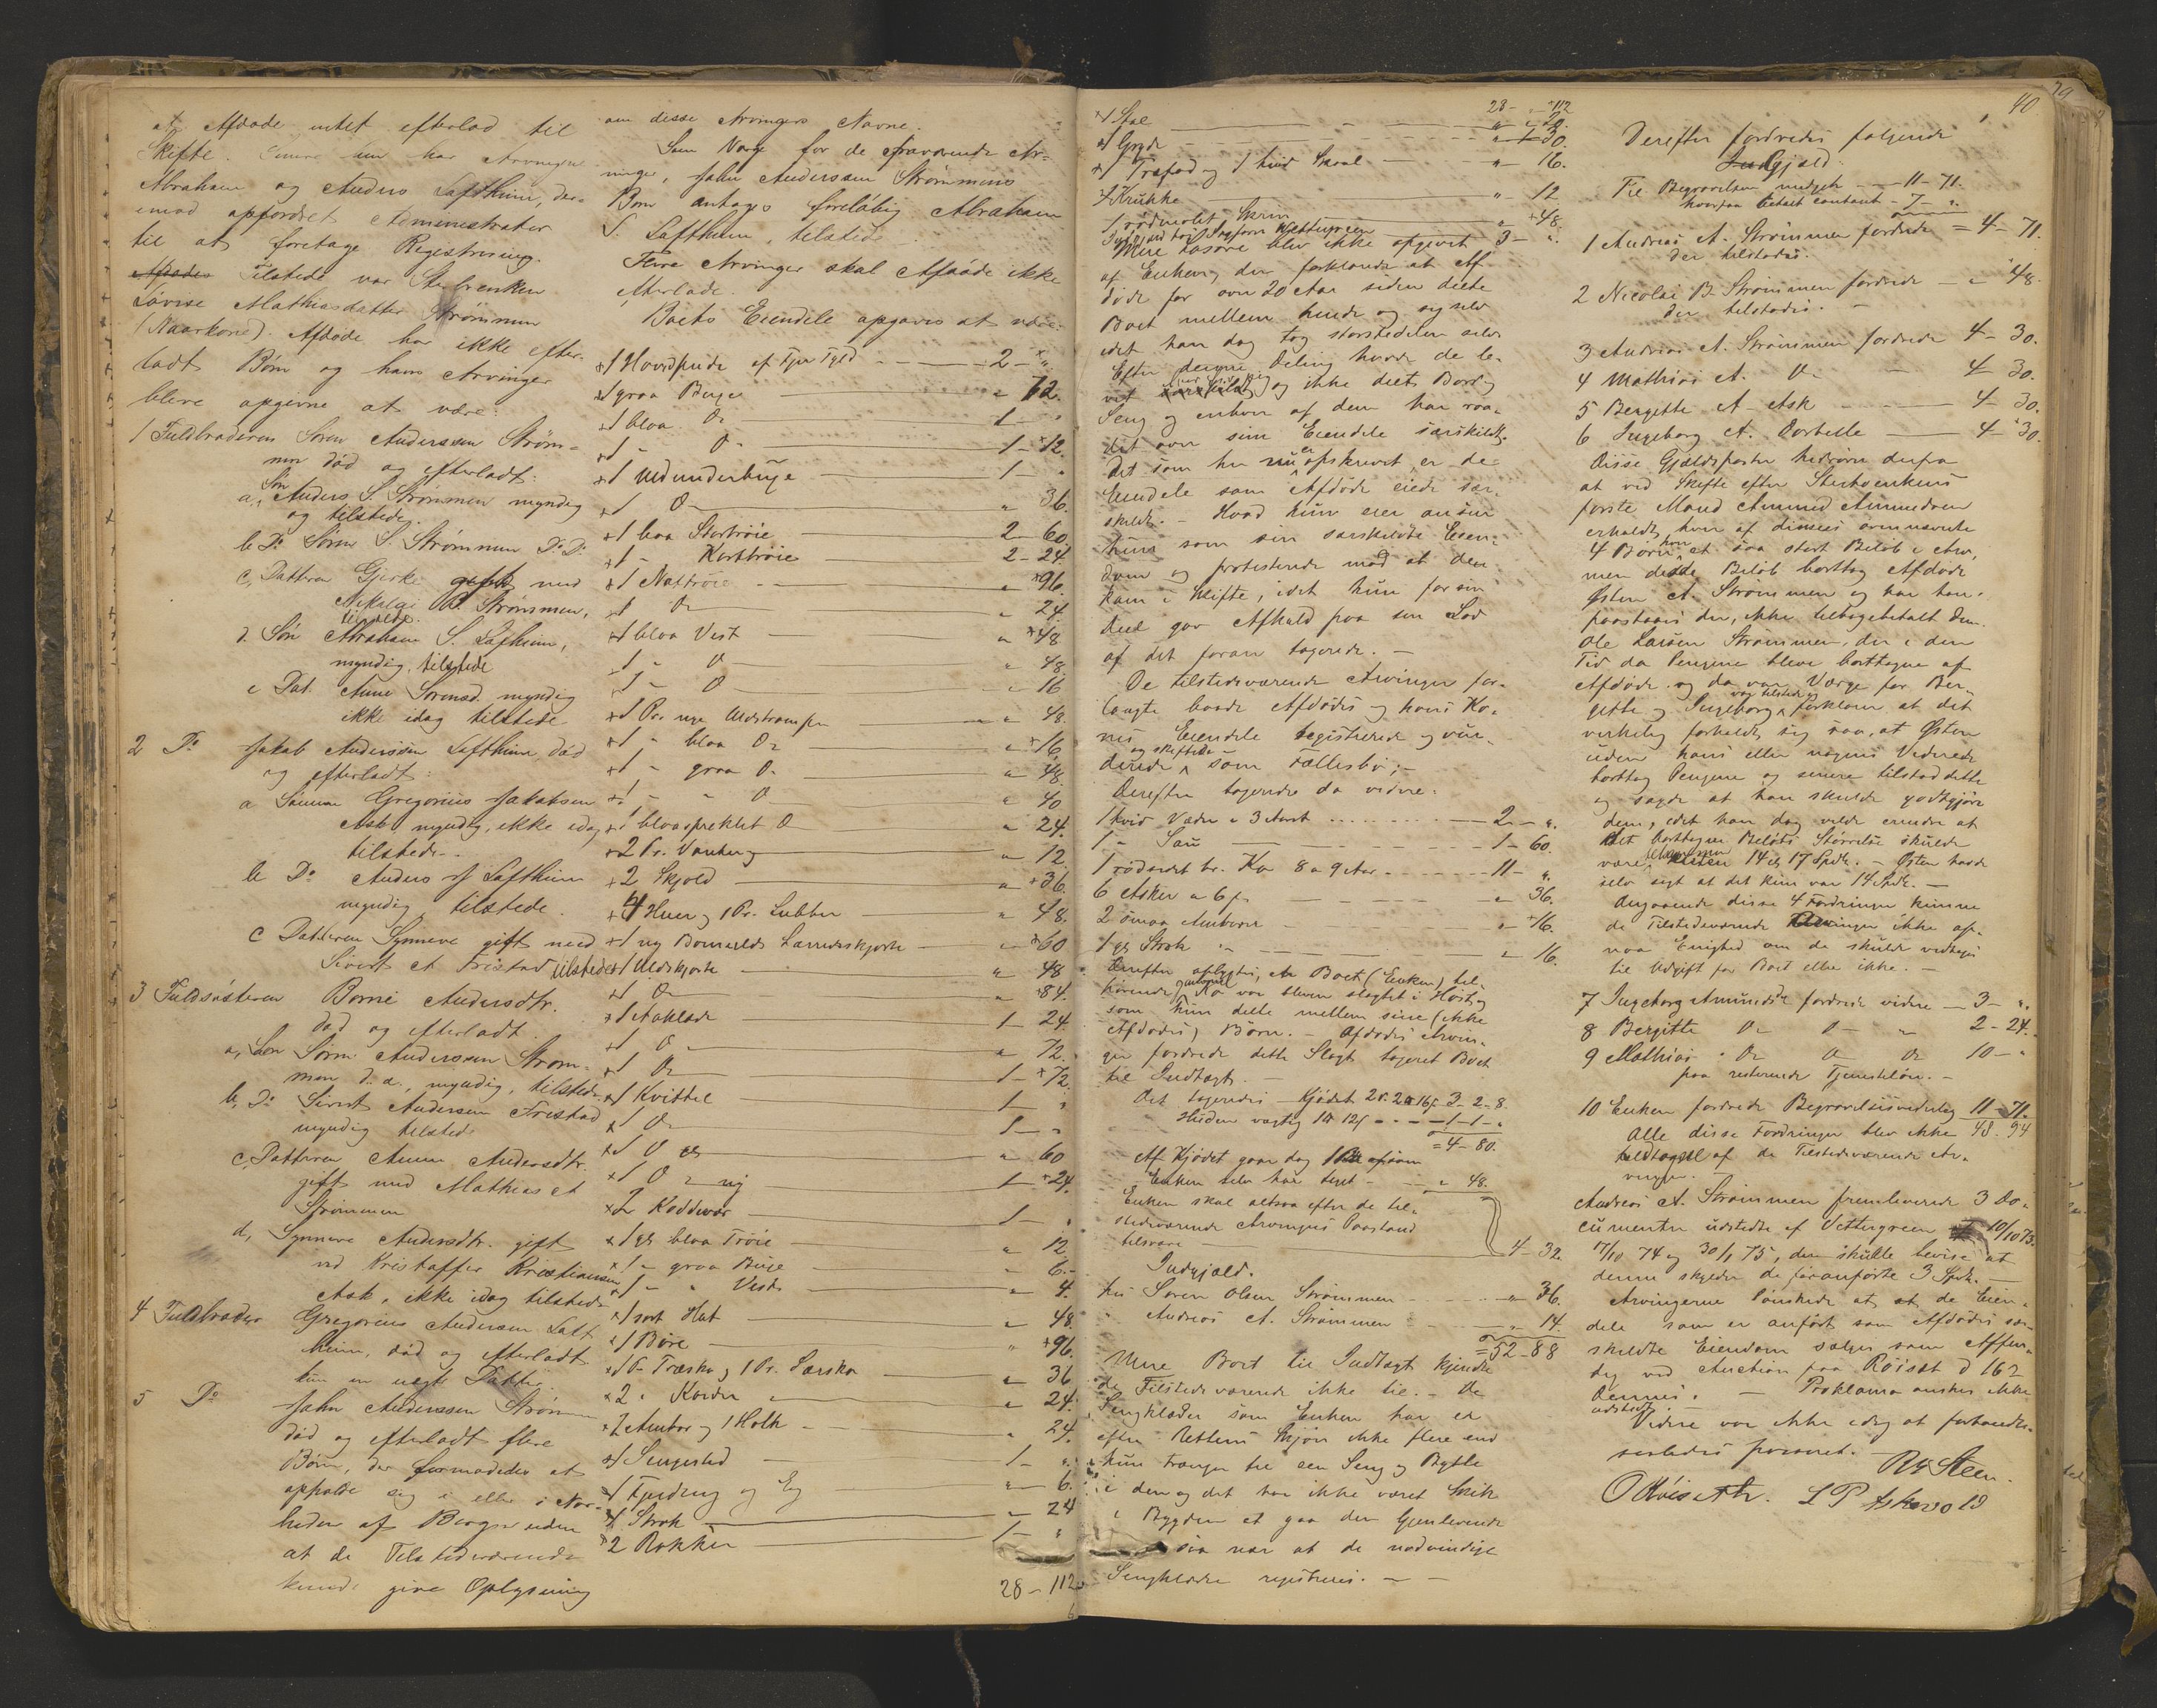 at Afdøde intet efterlod til
Skifte. Senere hen har Arvingerne
Abraham og Anders Laftheim, der-
imod opfordret Administrator
til at foretage Registrering.
Tilstede var Sterbenken
Lovise Mathiasdatter Strømmen
(Kaarkone). Afdøde har ikke efter-
ladt Børn og hans Arvinger
bleve opgivne at være:
1 Fuldbroderen Søren Anderssen Strøm-
men død og efterladt:
a, Søn Anders S. Strømmen myndig
og tilstede.
b Do Søren S. Strømmen Do Do
c, Datteren Gjerke gift med
Nikolai B. Strømmen,
tilstede.
d. Søn Abraham S. Laftheim,
myndig, tilstede
e Dat. Anne Sørensd. myndig
ikke idag tilstede
2 Do Jakob Anderssen Laftheim, død
og efterladt:
a Sønnen Gregorius Jakobsen
Ask myndig, ikke idag
tilstede.
b Do Anders J Laftheim
myndig, tilstede.
c Datteren Synneve gift med
Sivert A Fristad tilstede
3 Fuldsøsteren Borni Andersdtr.
død og efterladt
a, Søn Søren Anderssen Strøm-
men d. a., myndig, tilstede
b, Do Sivert Andersen Fristad
myndig tilstede
c, Datteren Anna Andersdtr.
gift med Mathias A
Strømmen
d, Synneve Andersdtr. gift
med Kristoffer Kristiansen
Ask, ikke idag tilstede
4 Fuldbroder Gregorius Andersen Laft-
heim, død og efterladt
kun en uegte Datter.
5 Do John Anderssen Strømmen
død og efterladt flere
Børn, der formodedes at
opholde sig i eller i Nær-
heden af Bergen uden
at de Tilstedeværende
kunde give Oplysning
om disse Arvingers Navne.
Som Verge for de fraværende Ar-
vinger, John Anderssen Strømmens
Børn antages foreløbig Abraham
S. Laftheim, tilstede.
Flere Arvinger skal Afdøde ikke
efterlade.
Boets Eiendele opgaves at være:
1 Hovedpude af Fjer Tyld 2 - "
1 graa Buxe " 72.
1 blaa Do 1 - "
1 - Do 1 - 12.
1 Uldunderbuxe 1 - "
1 Do " 36.
1 blaa Stortrøie 2 - 60.
1 - Korttrøie 2 - 24.
1 Nattrøie " 96.
1 Do " 24.
1 blaa Vest " 48
1 - Do " 48.
1 - Do " 16
1 Pr. nye Uldstrømper " 48.
1 - blaa Do " 16,
1 - graa Do " 48.
1 - " Do " 40
1 blaaspreklet Do " 24.
2 Pr. Vanter " 12.
2 Skjold " 36.
4 Huer og 1 Pr. Lubber " 48.
1 ny Bomulds Lærredsskjorte " 60
1 Uldskjorte " 48
1 Do " 84.
1 Aaklæde 1 - 24.
1 Do " 72.
1 Do 1 - 72.
1 Kvittel 1 - "
1 Do 1 - "
1 Do gl " 60
1 Do ny 1 - 24.
2 Koddevar 1 - "
1 gl. blaa Trøie " 12
1 - graa Buxe " 6.
1 - " Vest " 4.
1 sort Hat " 48.
1 Børe " 96.
1 Pr Træsko og 1 Pr. Lærsko " 36
2 " Karder " 24.
2 Ambar og 1 Holk " 24.
1 Sengested 1 - "
1 Fjerding og Eg " 6.
1 Strok " 24
2 Rokker 1 - "
28 - 112
28 - 112
1 Stol " 20.
1 Gryde 1 30.
1 Træfad og 1 hvid Skaal " 16.
4 Krukke " 12
1 rødmalet Skrin " 48.
3 - "
Mere Løsøre blev ikke opgivet
af Enken, der forklarede at Af-
døde for over 20 Aar siden delte
Boet mellem hende og sig selv
idet han dog tog størstedelen selv.
Efter denne Deling havde de le-
vet og ikke delt Bord og
Seng og enhver af dem har raa-
det over sine Eiendele særskildt.
Det som her nu er opskrevet er de
Eiendele som Afdøde eiede sær-
skildt. - Hvad hun eier anser
hun som sin særskildte Eien-
dom og protesterede mod at den
kom i Skifte, idet hun for sin
Deel gav Afkald paa sin Lod
af det foran tagerede. -
De tilstedeværende Arvinger for-
langte baade Afdødes og hans Ko-
nes Eiendele registrerede og vur-
derede og skiftede som Fællesbo; -
Derefter tagerdes da videre:
1 hvid Væder a 3 Aar 2 - "
1 - Sau 1 - 60.
1 rødsidet br. Ko 8 a 9 Aar 11 - "
6 Asker a 6 s. " 36.
2 smaa Ambarer " 16.
1 gl Strok " 16.
Derefter oplystes, at Boet (Enken) til-
hørende Ko var bleven slagtet i Høst og
som hun delte mellem sine (ikke
Afdødes) Børn. - Afdødes Arvin-
ger fordrede dette Slagt tageret Boet
til Indtægt. -
Det tageredes - Kjødet 2v. 2 a 16 s. 3 - 2 - 8.
Huden vægtig 1 a 12 s - 1 - 1 - "
= 4 - 80.
Af Kjødet gaar dog
Enken selv har taget - " 48.
Enken skal altsaa efter de til-
stedeværende Arvingers Paastand
tilsvare 4 - 32.
Indgjæld.
hos Søren Olsen Strømmen " 36.
" Andreas A. Strømmen " 14.
= 52 - 88
Mere Boet til Indtægt kjendte
de Tilstedeværende ikke til. - De
Sengklæder som Enken har er
efter Rettens Skjøn ikke flere end
hun trænger til een Seng og Bytte
i den og det har ikke været Skik
i Bygden at gaa den Gjenlevende
saa nær at de nødvendige
Sengklæder registreres. -
39
40
Derefter fordredes følgende
Udgjæld.
Til Begravelsen medgik - 11 - 71.
hvoraf betalt contant - 7 - "
1 Andreas A. Strømmen fordrede = 4 - 71.
der tilstodes.
2 Nicolai B. Strømmen fordrede - " 48.
der tilstodes. -
3 Andreas A. Strømmen fordrede 4 - 30.
4 Mathias A. Do - 4 30.
5 Bergitte A Ask 4 - 30.
6 Ingeborg A. 4 - 30.
Disse Gjældsposter hidrøre derfra
at ved Skifte efter Sterbenkens
første Mand Amund Amundsen
erholdt hver af dennes ovennævnte
4 Børn et saa stort Beløb i Arv,
men dette Beløb borttog Afdøde
Østen A. Strømmen og har han,
paastaaes der, ikke tilbagebetalt dem.
Ole Larsen Strømmen, der i den
Tid da Pengene bleve borttagne af
Afdøde og da var Værge for Ber-
gitte og Ingeborg var tilstede og forklarer at det
virkelig forholdt sig saa, at Østen
uden hans eller nogens Vidende
borttog Pengene og senere tilstod dette
og sagde at han skulde godtgjøre
dem, idet han dog vilde erindre at
det borttagne Beløbs Størrelse skulde
være 14 a 17 Spdlr. - Østen havde
selv sagt at det kun var 14 Spdlr. -
Angaaende disse 4 Fordringer kunne
de Tilstedeværende Arvinger ikke op-
naa Enighed om de skulde vedtages
til Udgift for Boet eller ikke. -
7 Ingeborg Amundsdr fordrede videre - 3 - "
8 Bergitte Do Do " 2 - 24.
9 Mathias Do Do Do 10 - "
paa resterende Tjenesteløn. -
10 Enken fordrede Begravelsesvederlag 11 - 71.
Alle disse Fordringer blev ikke 48. 94
vedtaget af de Tilstedeværende Ar-
vinger.
Andreas A. Strømmen fremleverede 3 Do-
cumenter udstedte af Vettergreen 10/10 73.
17/10 74 og 30/1 75, der skulle bevise at
denne skylder de foranførte 3 Spdlr. -
Arvingerne ønskede at de Eien-
dele som er anført som Afdødes sær-
skildte Eiendom sælges som
ved Auction paa Röiset d 16de
dennes. - Proklama ønskes ikke
udstedt. -
Videre var ikke idag at forhandle.
saaledes passeret. -
R Steen.
O Kviseth. L P Askevold